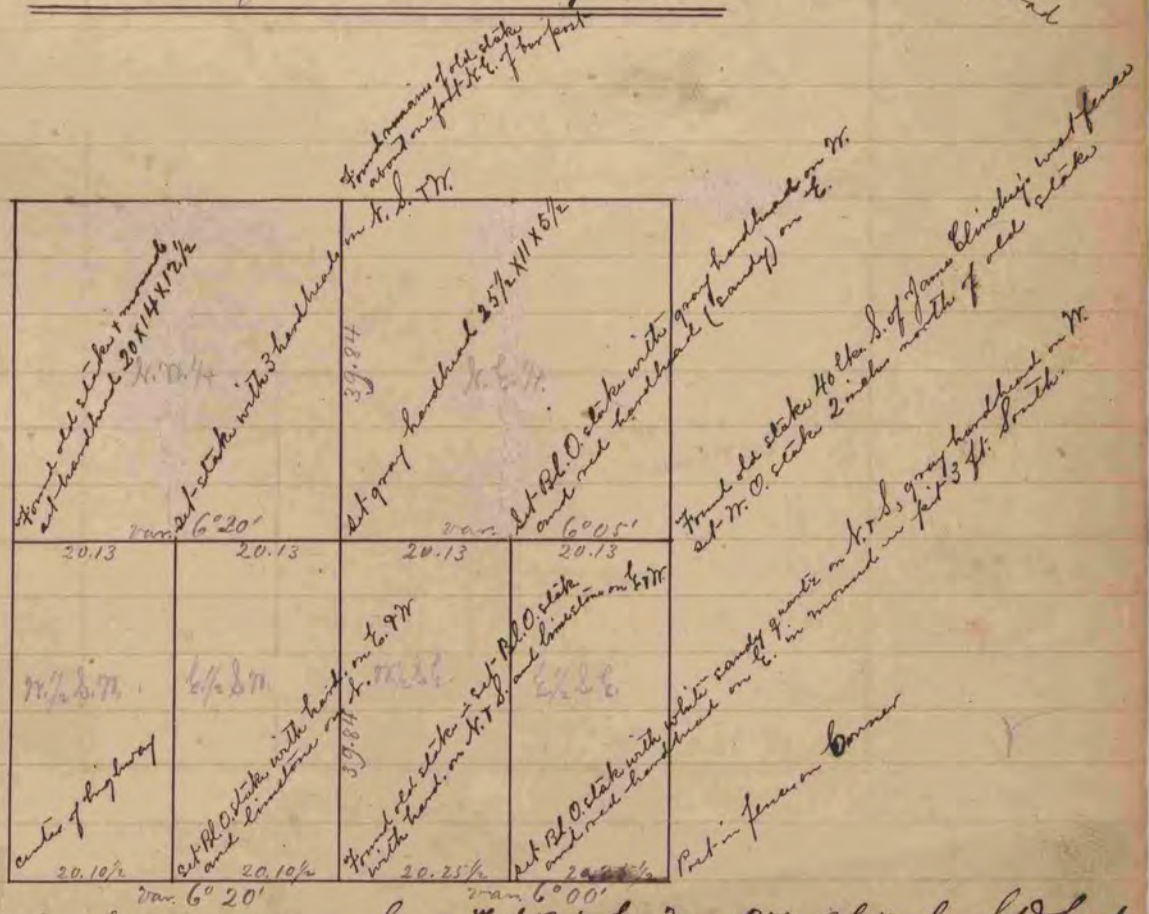 Found remains of old stake
about one foot N.E. of bar post
Found old stake & mound
set hardhead 20 X 14 X 12 1/2
set stake with 3 hardheads on N. S. & W.
39.84
set gray hardhead 25 1/2 X 11 X 5 1/2
Set Bl. O. stake with gray hardhead on W.
and red hardhead (sandy) on E.
Found old stake 40 lks. S. of James west fence
set W. O. stake 2 inches north of old stake
N.W. 1/4
N.E. 1/4
var. 6° 20'
var. 6° 05'
20.13
20.13
20.13
20.13
W. 1/2 S.W.
E. 1/2 S.W.
W. 1/2 S.E.
E. 1/2 S.E.
39.84
center of highway
set Bl. O. stake with hard. on E. & W
and limestone on N.
Found old stake - set Bl. O. stake
with hard. on N. & S. and limestone on E & W.
set Bl. O. stake with white sandy quartz on N. & S, gray hardhead on W.
and red hardhead on E. in mound in pit 3 ft. South.
Post in fence on Corner
20.10 1/2
20.10 1/2
20.25 1/2
var. 6° 20'
var 6° 00'